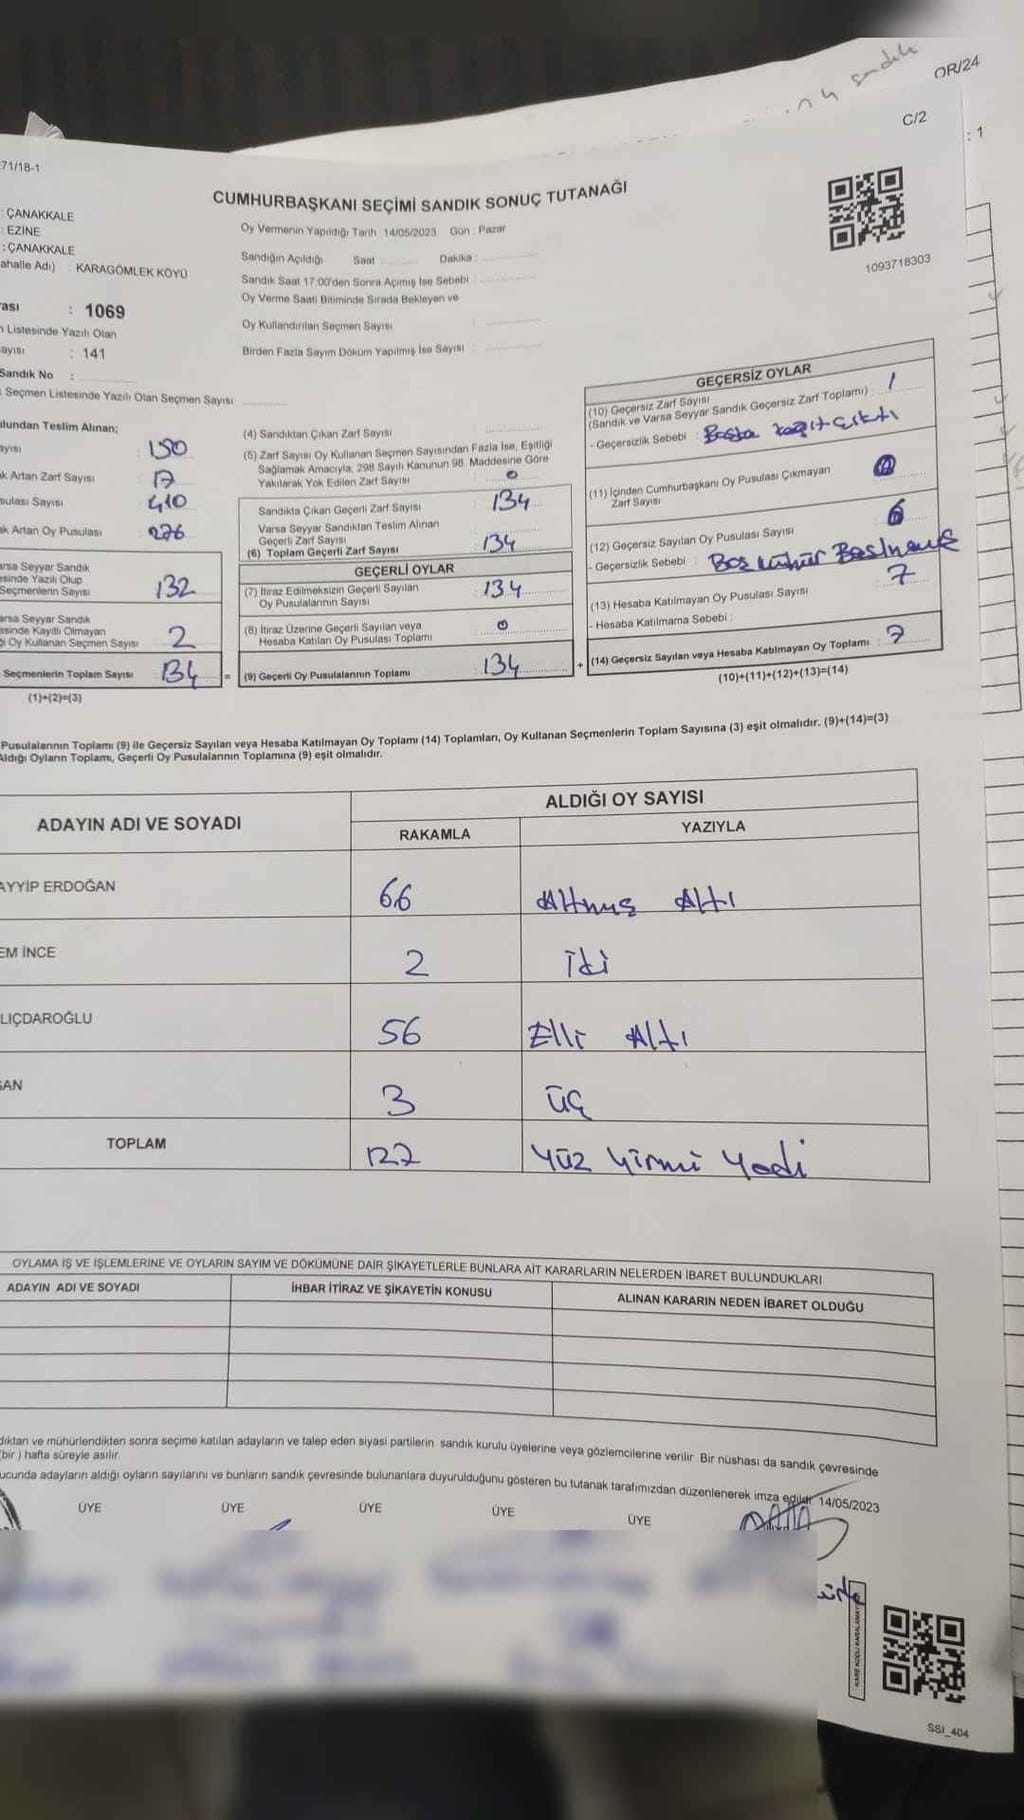 n 4 sandık
OR/24
C/2
: 1
71/18-1
CUMHURBAŞKANI SEÇİMİ SANDIK SONUÇ TUTANAĞI
: ÇANAKKALE
EZİNE
: ÇANAKKALE
ahalle Adı) : KARAGÖMLEK KÖYÜ
Oy Vermenin Yapıldığı Tarih : 14/05/2023 Gün : Pazar
Sandığın Açıldığı Saat : Dakika :
Sandık Saat 17:00'den Sonra Açılmış İse Sebebi :
Oy Verme Saati Bitiminde Sırada Bekleyen ve
Oy Kullandırılan Seçmen Sayısı :
Birden Fazla Sayım Döküm Yapılmış İse Sayısı :
1093718303
ası : 1069
n Listesinde Yazılı Olan
ayısı : 141
Sandık No :
Seçmen Listesinde Yazılı Olan Seçmen Sayısı
ulundan Teslim Alınan;
ayısı 150
k Artan Zarf Sayısı 17
sulası Sayısı 410
k Artan Oy Pusulası 276
arsa Seyyar Sandık
esinde Yazılı Olup
Seçmenlerin Sayısı 132
arsa Seyyar Sandık
esinde Kayıtlı Olmayan
Oy Kullanan Seçmen Sayısı 2
Seçmenlerin Toplam Sayısı 134 =
(1)+(2)=(3)
(4) Sandıktan Çıkan Zarf Sayısı
(5) Zarf Sayısı Oy Kullanan Seçmen Sayısından Fazla İse, Eşitliği
Sağlamak Amacıyla, 298 Sayılı Kanunun 98. Maddesine Göre
Yakılarak Yok Edilen Zarf Sayısı 0
Sandıkta Çıkan Geçerli Zarf Sayısı 134
Varsa Seyyar Sandıktan Teslim Alınan
Geçerli Zarf Sayısı
(6) Toplam Geçerli Zarf Sayısı : 134
GEÇERLİ OYLAR
(7) İtiraz Edilmeksizin Geçerli Sayılan
Oy Pusulalarının Sayısı : 134
(8) İtiraz Üzerine Geçerli Sayılan veya
Hesaba Katılan Oy Pusulası Toplamı : 0
(9) Geçerli Oy Pusulalarının Toplamı : 134 +
GEÇERSİZ OYLAR
(10) Geçersiz Zarf Sayısı
(Sandık ve Varsa Seyyar Sandık Geçersiz Zarf Toplamı) : 1
- Geçersizlik Sebebi : Başka kağıt çıktı
(11) İçinden Cumhurbaşkanı Oy Pusulası Çıkmayan
Zarf Sayısı
(12) Geçersiz Sayılan Oy Pusulası Sayısı 6
- Geçersizlik Sebebi :
(13) Hesaba Katılmayan Oy Pusulası Sayısı : 7
- Hesaba Katılmama Sebebi :
(14) Geçersiz Sayılan veya Hesaba Katılmayan Oy Toplamı : 7
(10)+(11)+(12)+(13)=(14)
Pusulalarının Toplamı (9) ile Geçersiz Sayılan veya Hesaba Katılmayan Oy Toplamı (14) Toplamları, Oy Kullanan Seçmenlerin Toplam Sayısına (3) eşit olmalıdır. (9)+(14)=(3)
Aldığı Oyların Toplamı, Geçerli Oy Pusulalarının Toplamına (9) eşit olmalıdır.
ADAYIN ADI VE SOYADI
ALDIĞI OY SAYISI
RAKAMLA YAZIYLA
AYYİP ERDOĞAN 66 Altmış Altı
EM İNCE 2 İki
LIÇDAROĞLU 56 Elli Altı
ĞAN 3 Üç
TOPLAM 127 Yüz Yirmi Yedi
OYLAMA İŞ VE İŞLEMLERİNE VE OYLARIN SAYIM VE DÖKÜMÜNE DAİR ŞİKAYETLERLE BUNLARA AİT KARARLARIN NELERDEN İBARET BULUNDUKLARI
ADAYIN ADI VE SOYADI İHBAR İTİRAZ VE ŞİKAYETİN KONUSU ALINAN KARARIN NEDEN İBARET OLDUĞU
dıktan ve mühürlendikten sonra seçime katılan adayların ve talep eden siyasi partilerin sandık kurulu üyelerine veya gözlemcilerine verilir. Bir nüshası da sandık çevresinde
(bir ) hafta süreyle asılır.
ucunda adayların aldığı oyların sayılarını ve bunların sandık çevresinde bulunanlara duyurulduğunu gösteren bu tutanak tarafımızdan düzenlenerek imza edildi. 14/05/2023
ÜYE ÜYE ÜYE ÜYE ÜYE
KARE KODU KARALAMAYINIZ
SSI_404